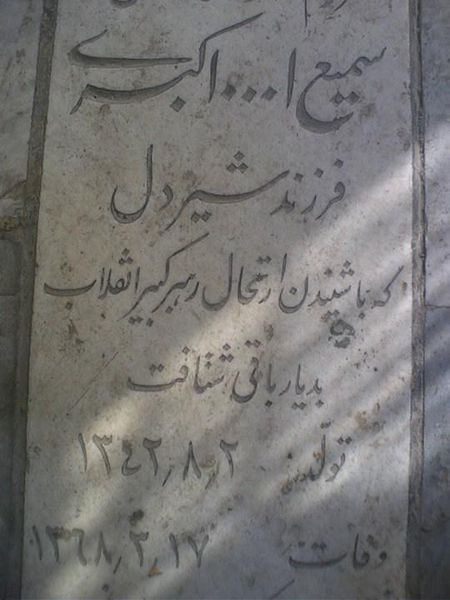 سمیع ا... اکبری
فرزند شیردل
که باشنیدن ارتحال رهبر کبیر انقلاب
بدیار باقی شتافت
تولد: ۱۳٤۲٫۸٫۲
وفات: ۱۳٦۸٫۳٫۱۷